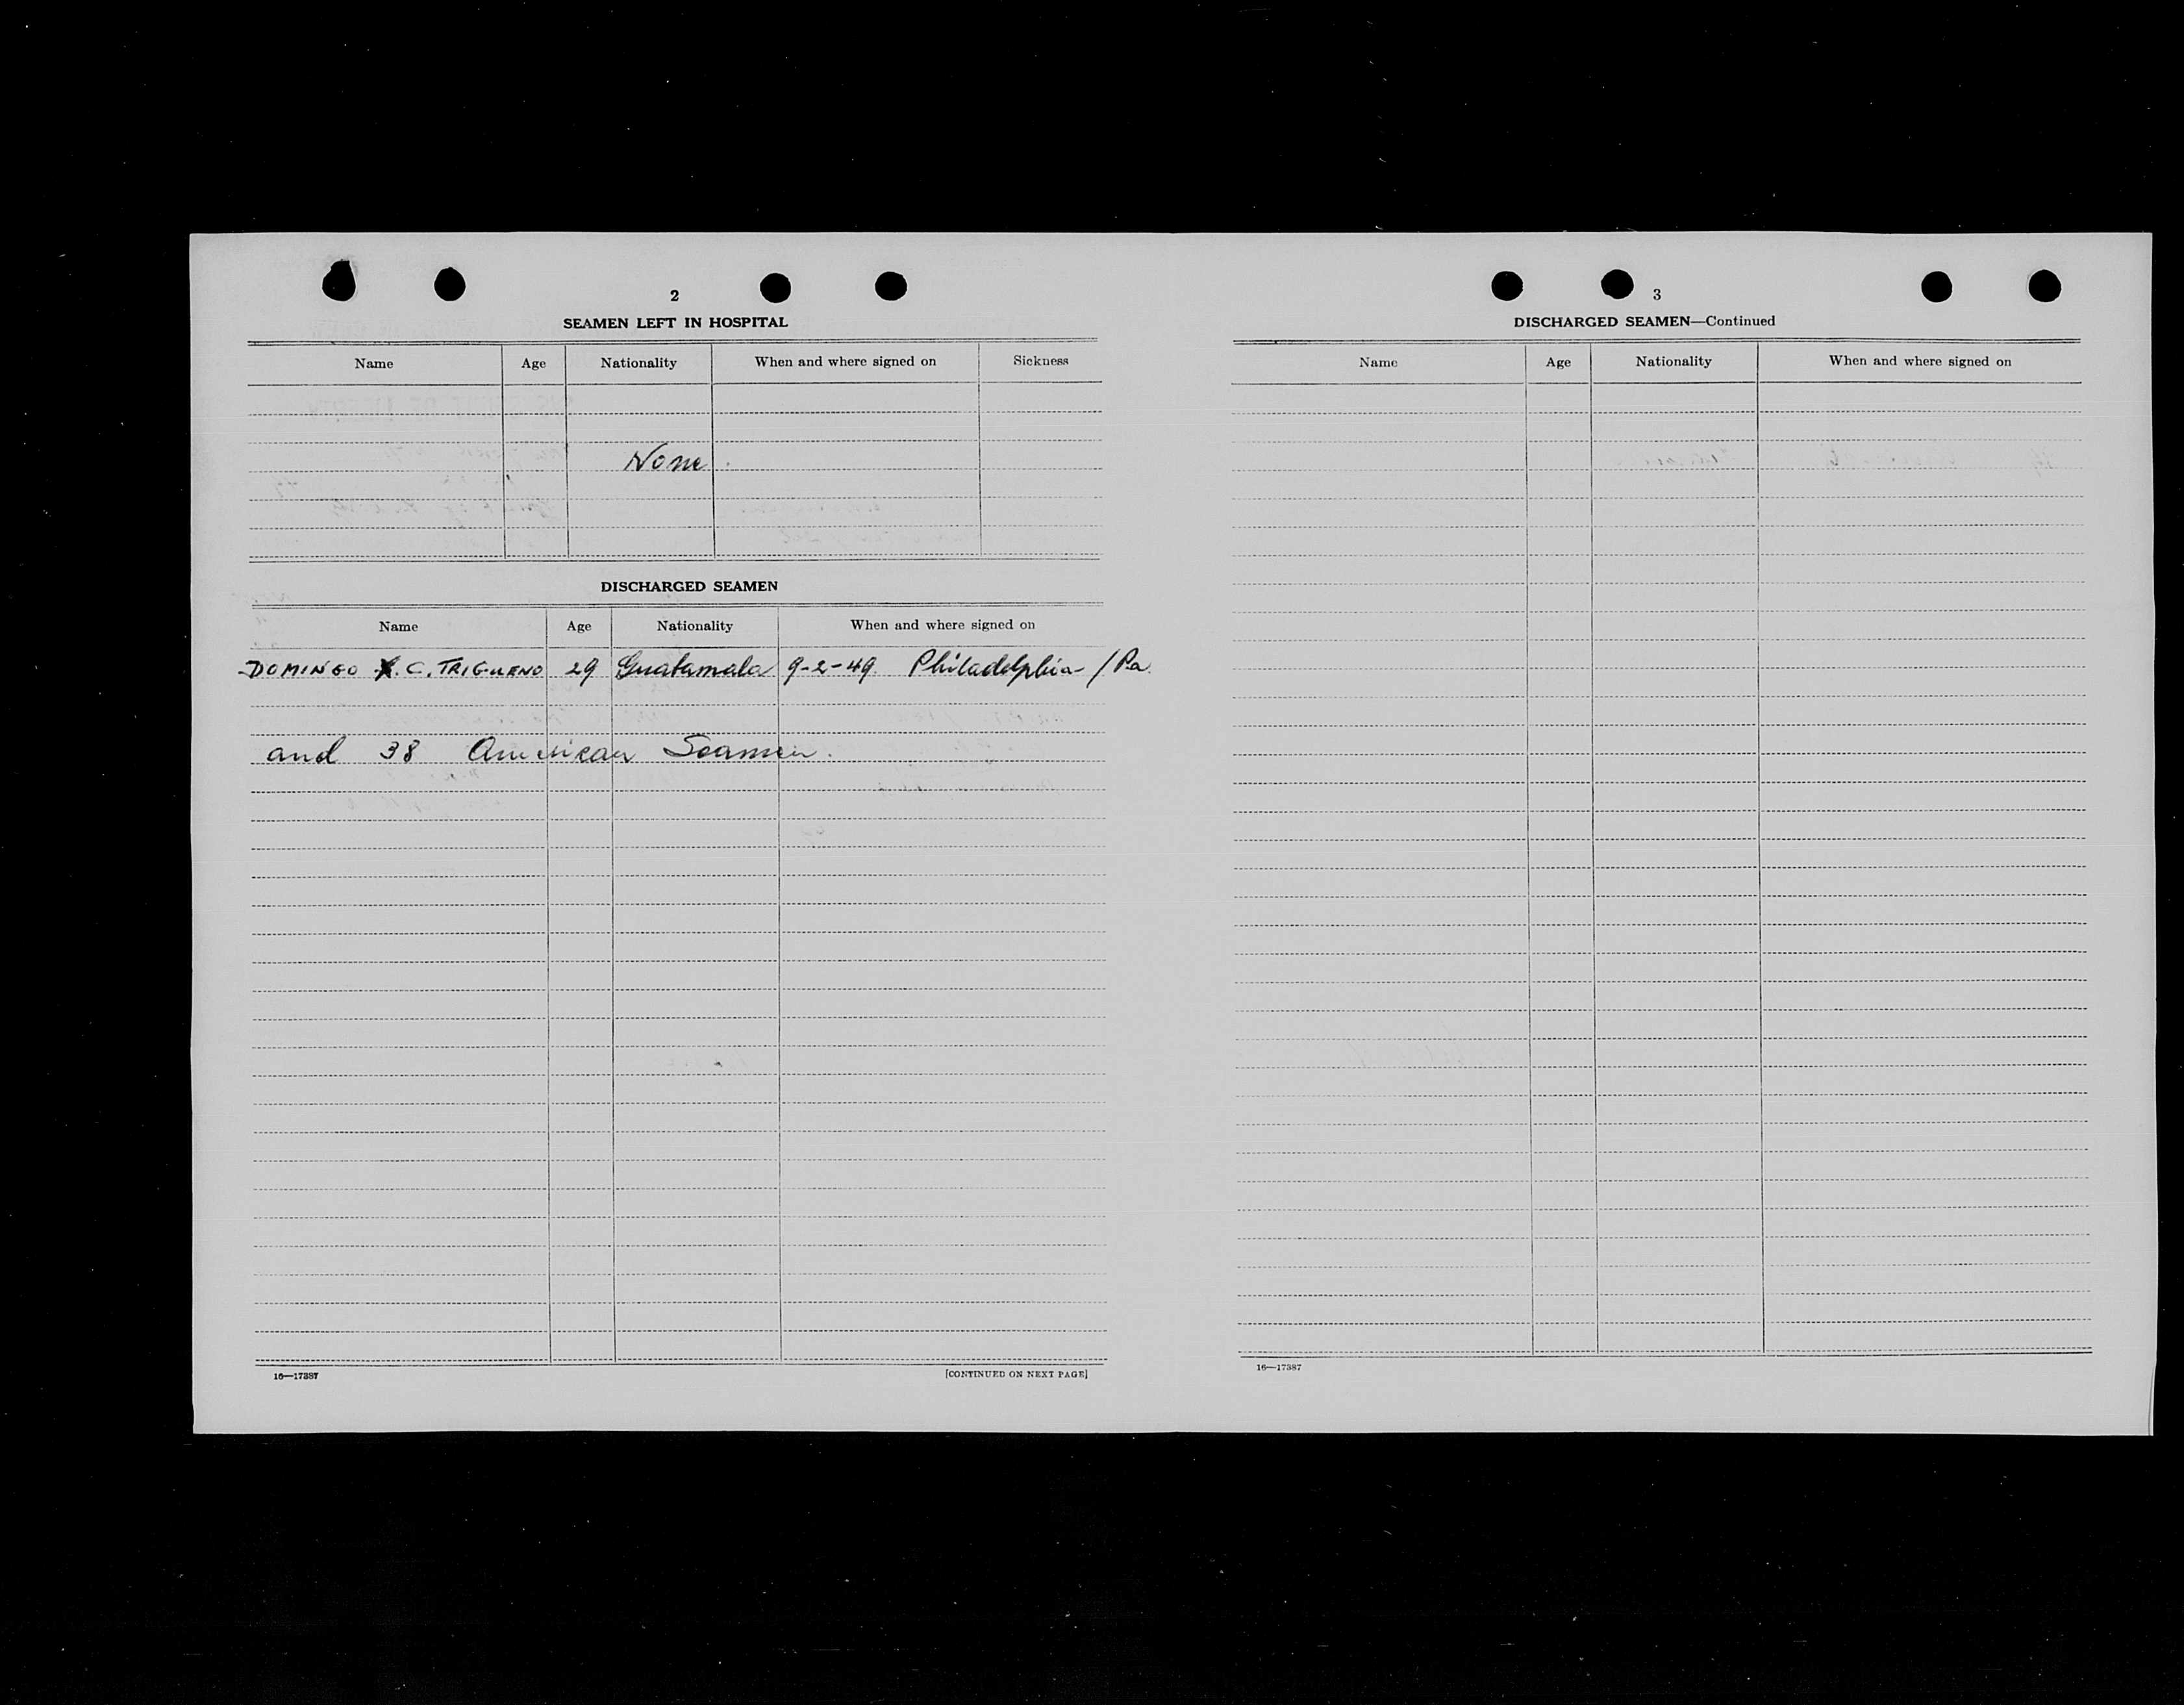 2
SEAMEN LEFT IN HOSPITAL
Name Age Nationality When and where signed on Sickness
None
DISCHARGED SEAMEN
Name Age Nationality When and where signed on
DOMINGO X. C. TRIGUENO 29 Guatamala 9-2-49 Philadelphia / Pa.
and 38 American Seamen.
16—17387 [CONTINUED ON NEXT PAGE]
3
DISCHARGED SEAMEN—Continued
Name Age Nationality When and where signed on
16—17387